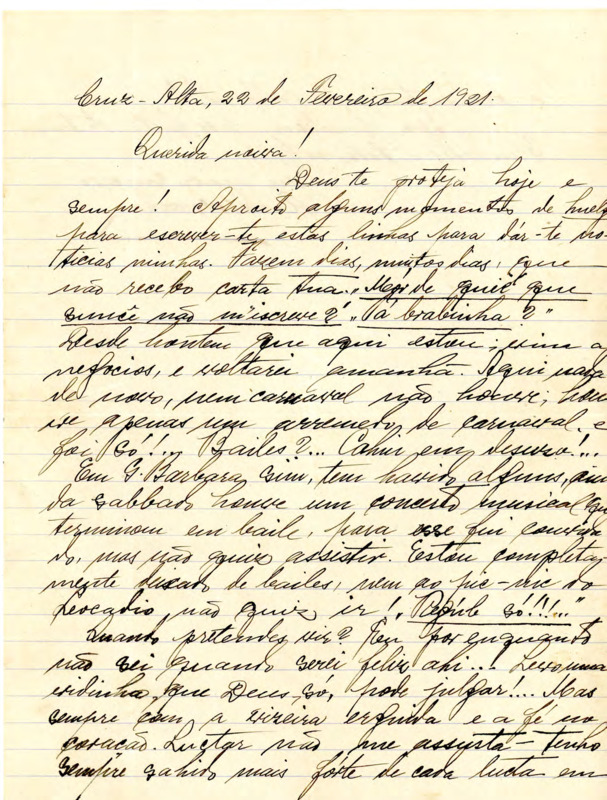 Cruz-Alta, 22 de Fevereiro de 1921.
Querida noiva!
Deus te proteja hoje e
sempre! Aproito alguns momentos de huelga
para escrever-te estas linhas para dár-te no-
ticias minhas. Fazem dias, muitos dias, que
não recebo carta tua. "Mopi de quê que
suncê não m'iscreve?" "Tá brabinha?"
Desde hontem que aqui estou; vim a
negocios, e voltarei amanhã. Aqui nada
de novo, nem carnaval não houve; hou-
ve apenas um arremedo de carnaval e
foi só!... Bailes?... Cahir em desuzo!...
Em G. Barbara sim, tem havido alguns, ain-
da sabbado houve um concerto musical que
terminou em baile, para esse fui convida-
do, mas não quiz assistir. Estou completa-
mente de bailes, nem ao pic-nic do
Leocadio não quiz ir! só!!!..."
Quando pretendes vir? Eu por enquanto
não sei quando serei feliz ahi... Levo uma
vidinha, que Deus, só, pode julgar!... Mas
sempre com a viseira erguida e a fé no
coração. Luctar não me assusta - tenho
sempre sahido mais fórte de cada lucta em